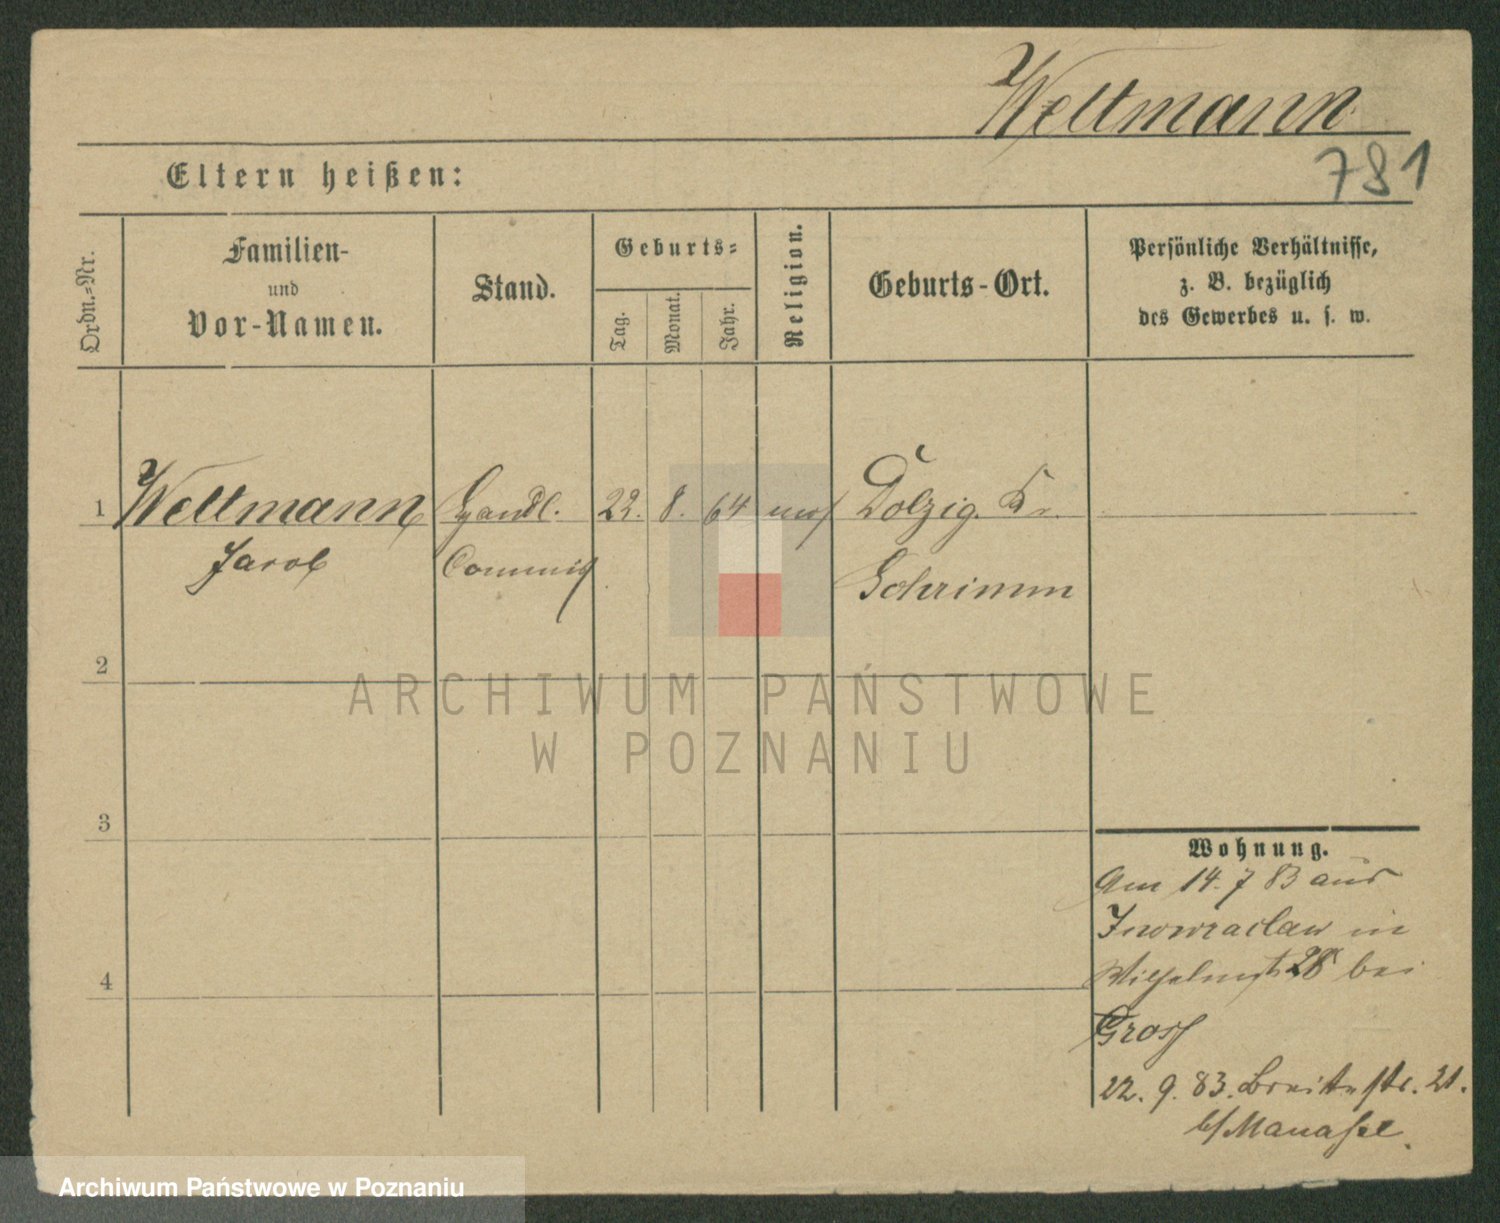 Weltmann
781
Eltern heißen:
Ordn.-Nr.
Familien-
und
Vor-Namen.
Stand.
Geburts-
Tag.
Monat.
Jahr.
Religion.
Geburts-Ort.
Persönliche Verhältnisse,
z. B. bezüglich
des Gewerbes u. s. w.
1 Weltmann Handl. 22. 8. 64 mos Dolzig. Kr.
Jacob Commis Schrimm
2
3
4
Wohnung.
Am 14. 7 83 aus
Inowraclaw in
Wilhelmst 28 bei
Gross
22. 9. 83. Breitestr. 21.
b/Manasse.
ARCHIWUM PAŃSTWOWE
W POZNANIU
Archiwum Państwowe w Poznaniu